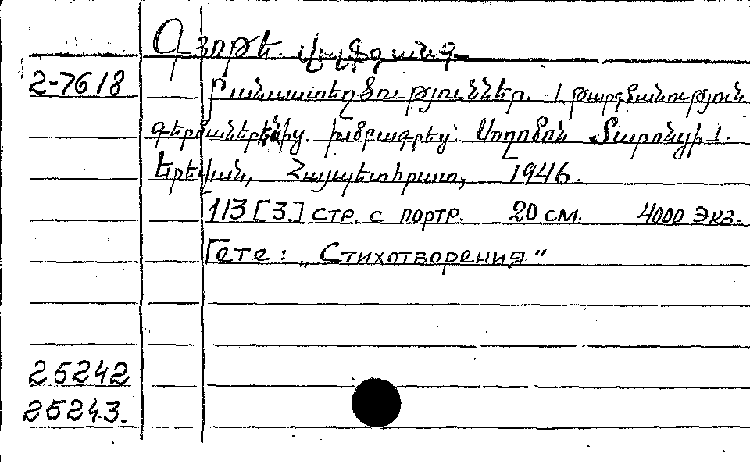 Գյոթե Վոլֆգանգ
2-7618
Բանաստեղծություններ. [թարգմանություն
գերմաներենից. խմբագրեց՝ Սողոմոն Տարոնցի].
Երեվան, Հայպետհրատ, 1946.
113 [3.] стр. с портр. 20 см. 4000 экз.
Гете: „Стихотворения"
25242
25243.